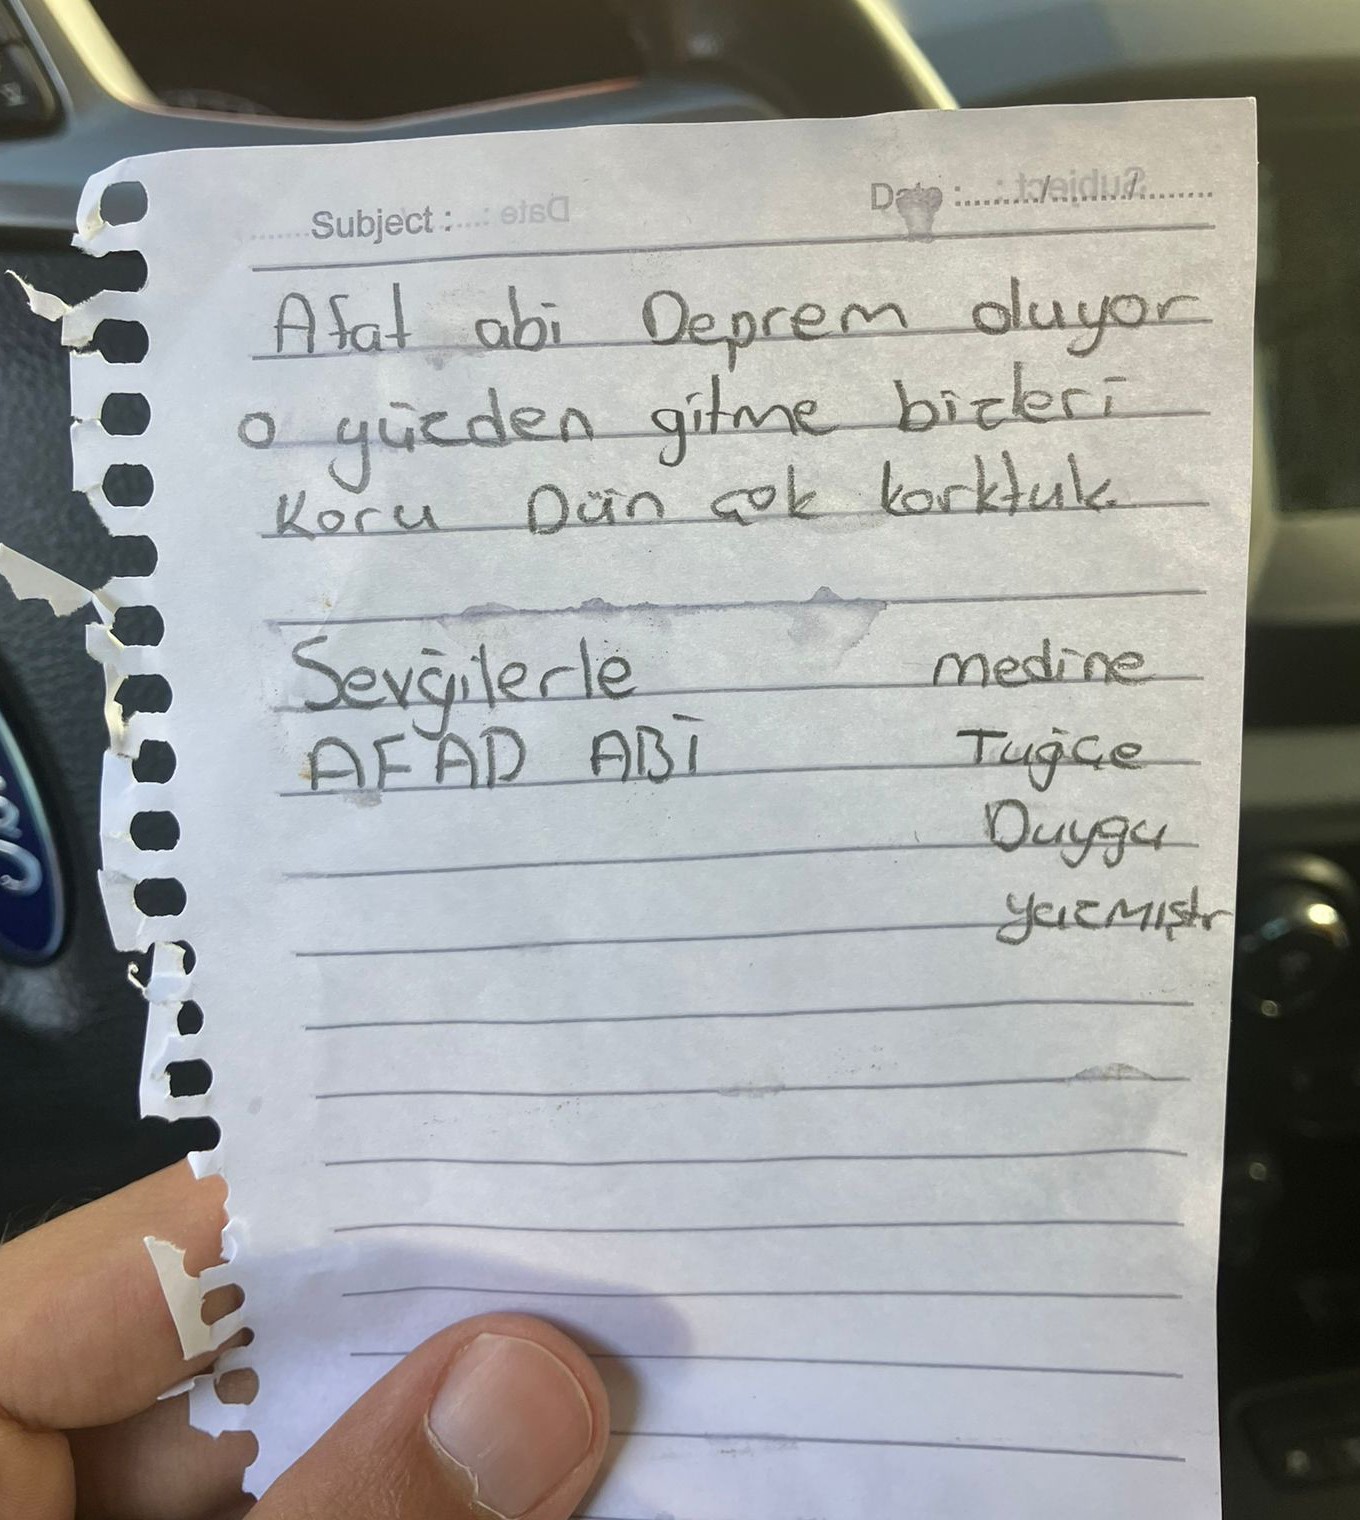 Subject : Date :....../....../.........
Afat abi Deprem oluyor
o yüzden gitme bizleri
Koru Dün çok korktuk.
Sevğilerle medine
AFAD ABİ Tuğçe
Duygu
yazmıştr